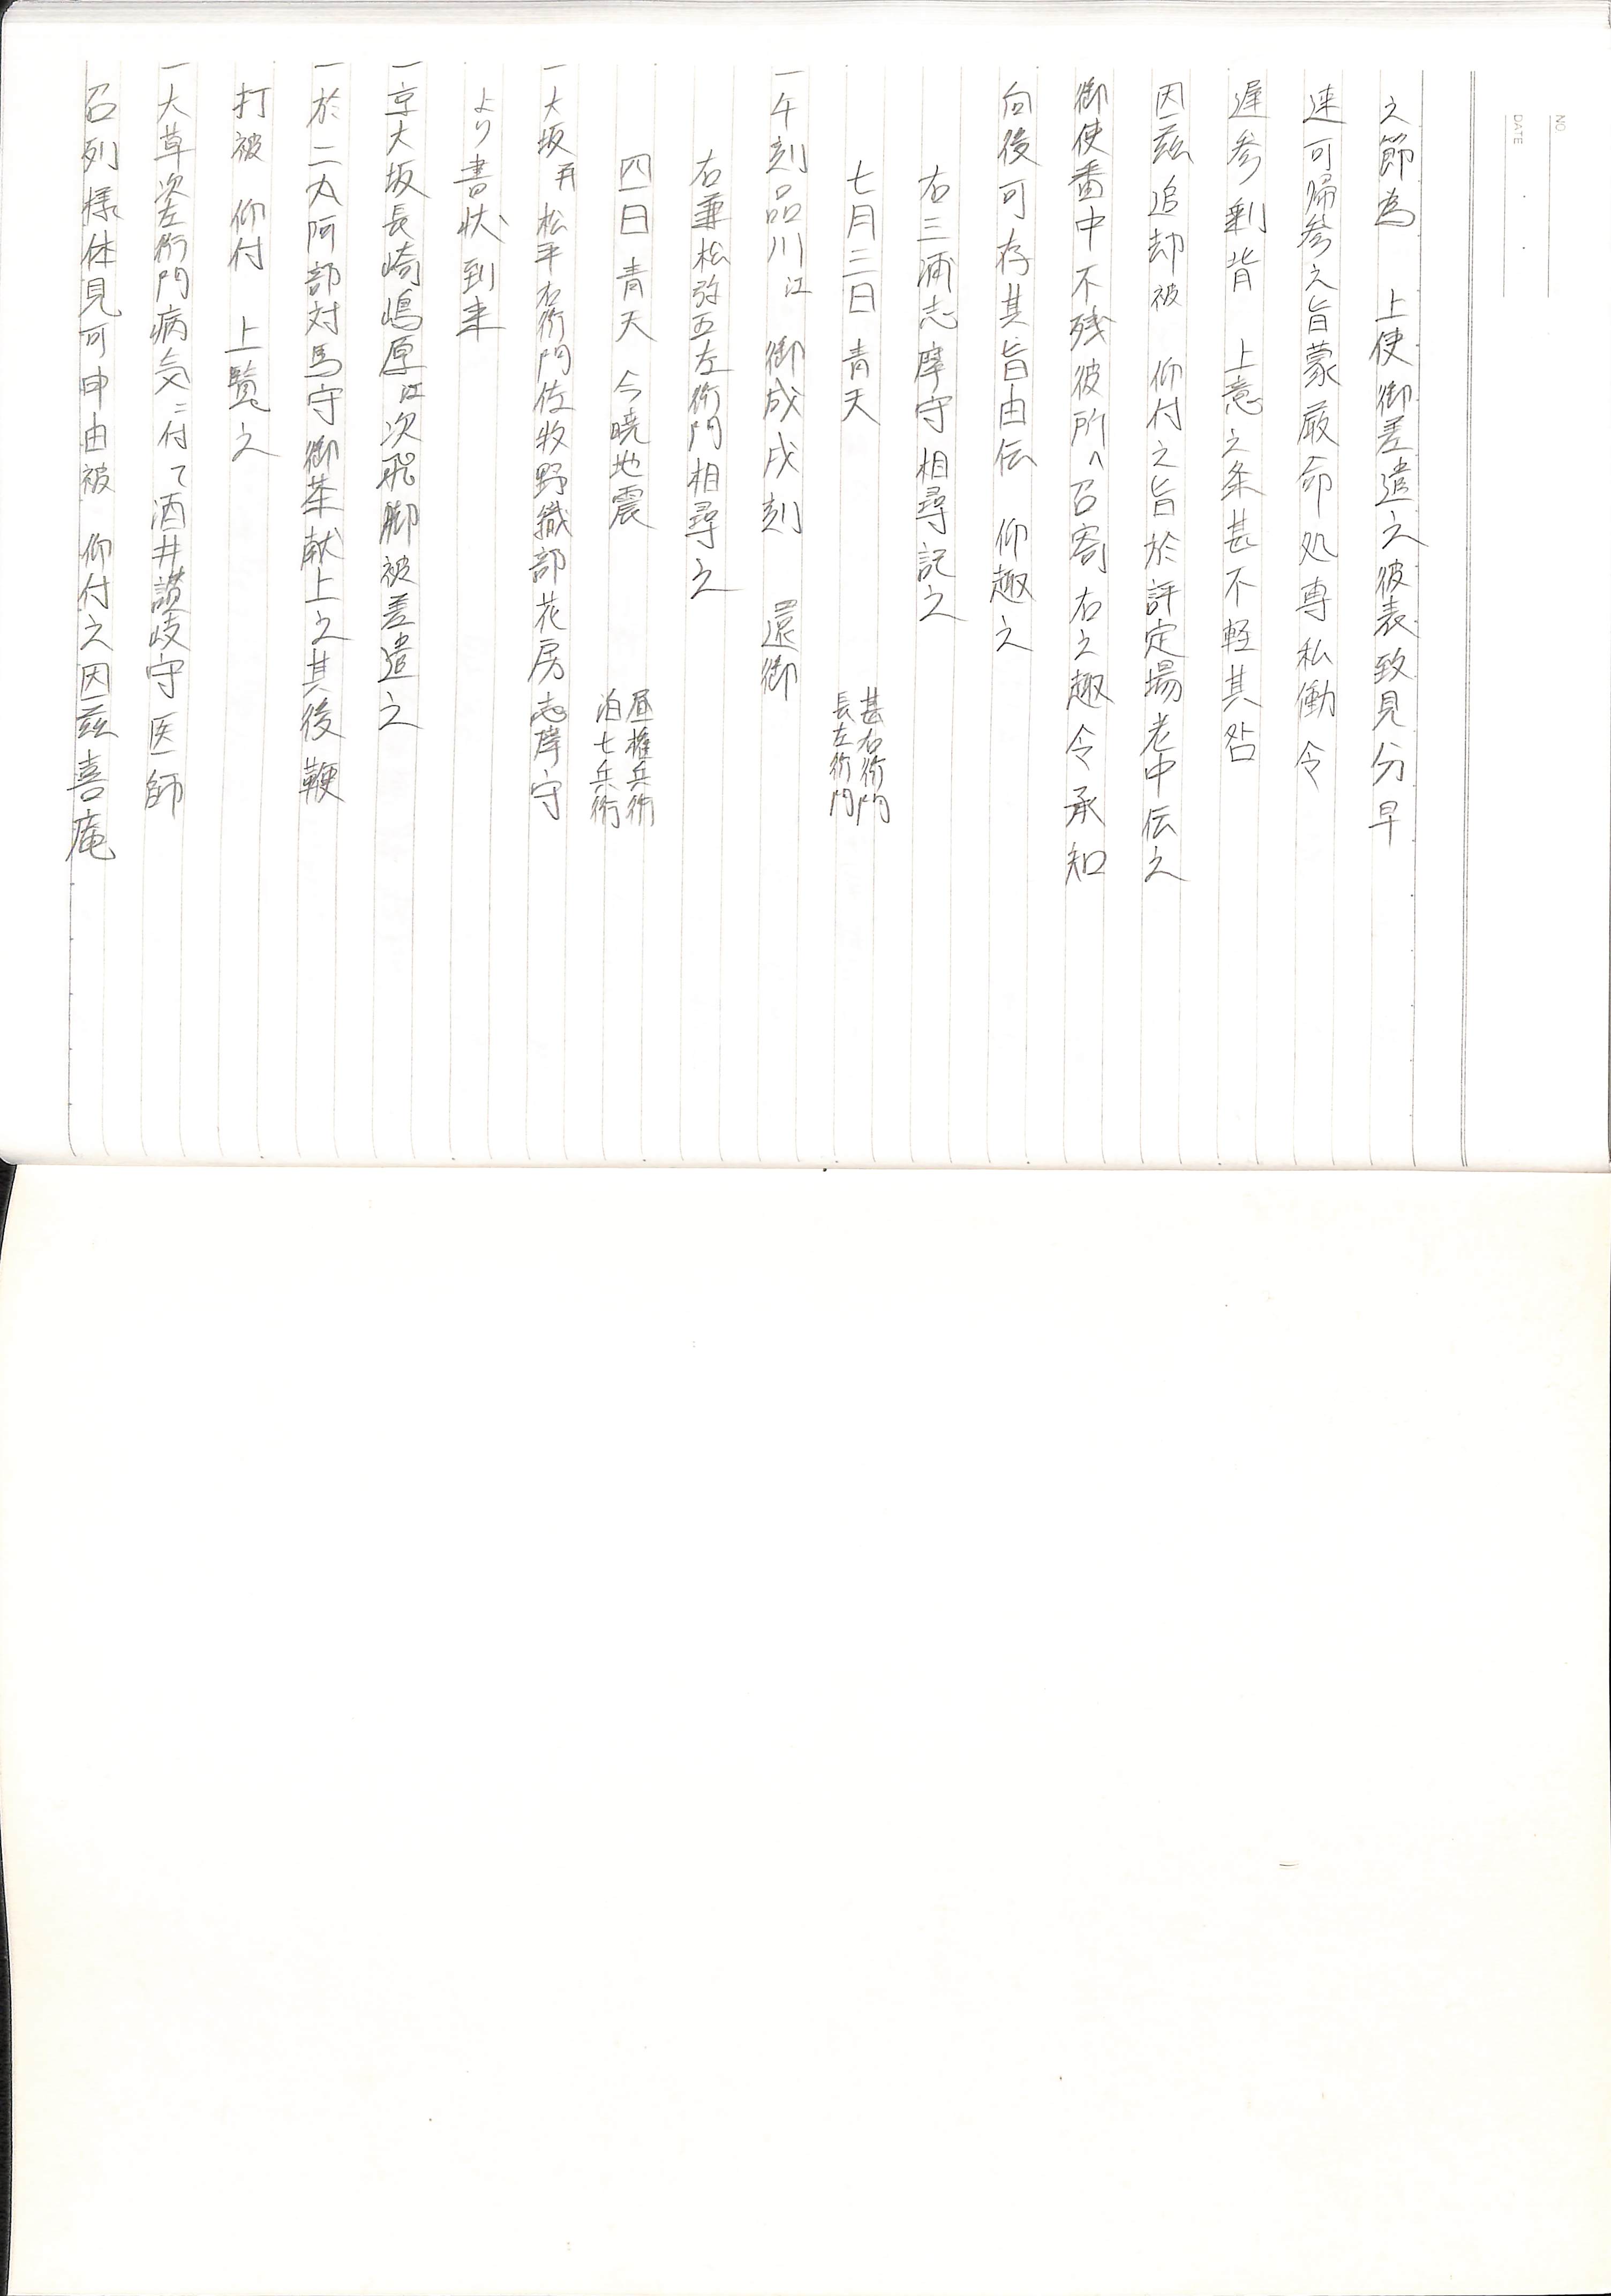 NO.
DATE
之節為　上使御差遣之彼表致見分早
速可帰参之旨蒙厳命処専私働令
遅参剰背　上意之条甚不軽其咎
因茲追却被　仰付之旨於評定場老中伝之
御使番中不残彼所へ召寄右之趣令承知
向後可存其旨由伝　仰趣之
右三浦志摩守相尋記之
七月三日　青天　甚右衛門
長左衛門
一午刻品川江　御成戌刻　還御
右兼松弥五左衛門相尋之
四日　青天　今暁地震　昼権兵衛
泊七兵衛
一大坂再松平右衛門佐牧野織部花房志摩守
より書状到来
一京大坂長崎嶋原江次飛脚被差遣之
一於二丸阿部対馬守御茶献上之其後鞭
打被　仰付　上覧之
一大草次左衛門病気ニ付て酒井讃岐守医師
召列様体見可申由被　仰付之因茲喜庵